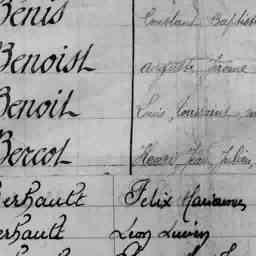 Bénis Constant Baptiste
Benoist Auguste Jérome
Benoit Louis, Toussaint,
Bercot Henri Jean Julien,
erhault Felix Marianne
erhault Léon Lucien